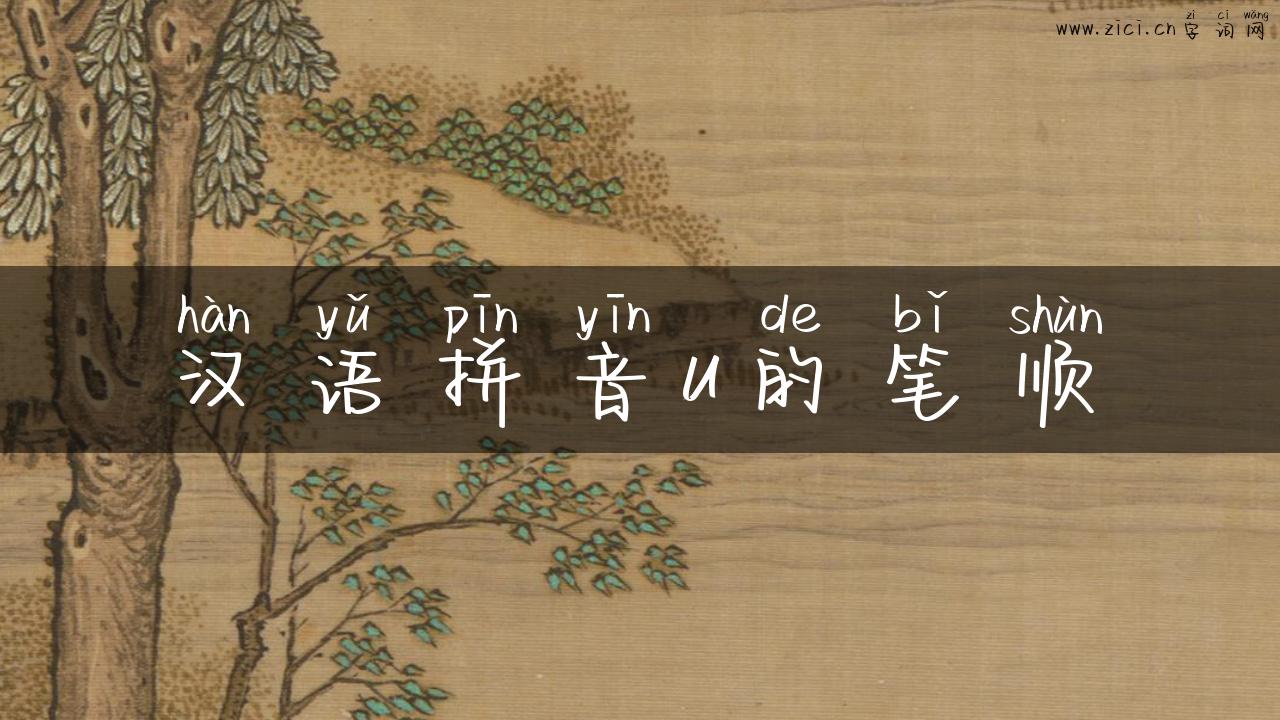 zì cí wǎng
www.zici.cn 字词网
hàn yǔ pīn yīn de bǐ shùn
汉语拼音u的笔顺